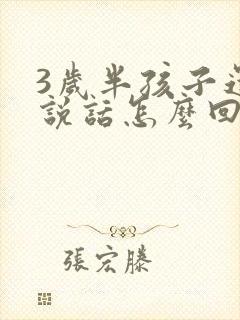 3歲半孩子還
說話怎麼回
張宏滕